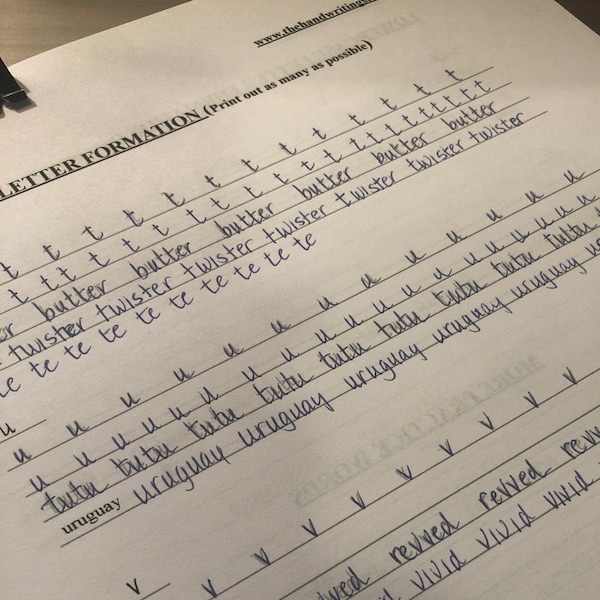 www.thehandwritings
LETTER FORMATION (Print out as many as possible)
t t t t t t t t t t t t t
t t t t t t t t t t t t t t t t t t t t t
er butter butter butter butter butter butter
twister twister twister twister twister twister twister
te te te te te te te te te te
u
u u u u u u u u u u u u u
u u u u u u u u u u u u u u u u u u u u u u
tutu tutu tutu tutu tutu tutu tutu tutu tutu
uruguay uruguay uruguay uruguay uruguay uruguay
v v v v v v v v v v
ved revved revved revv
id vivid vivid vivid